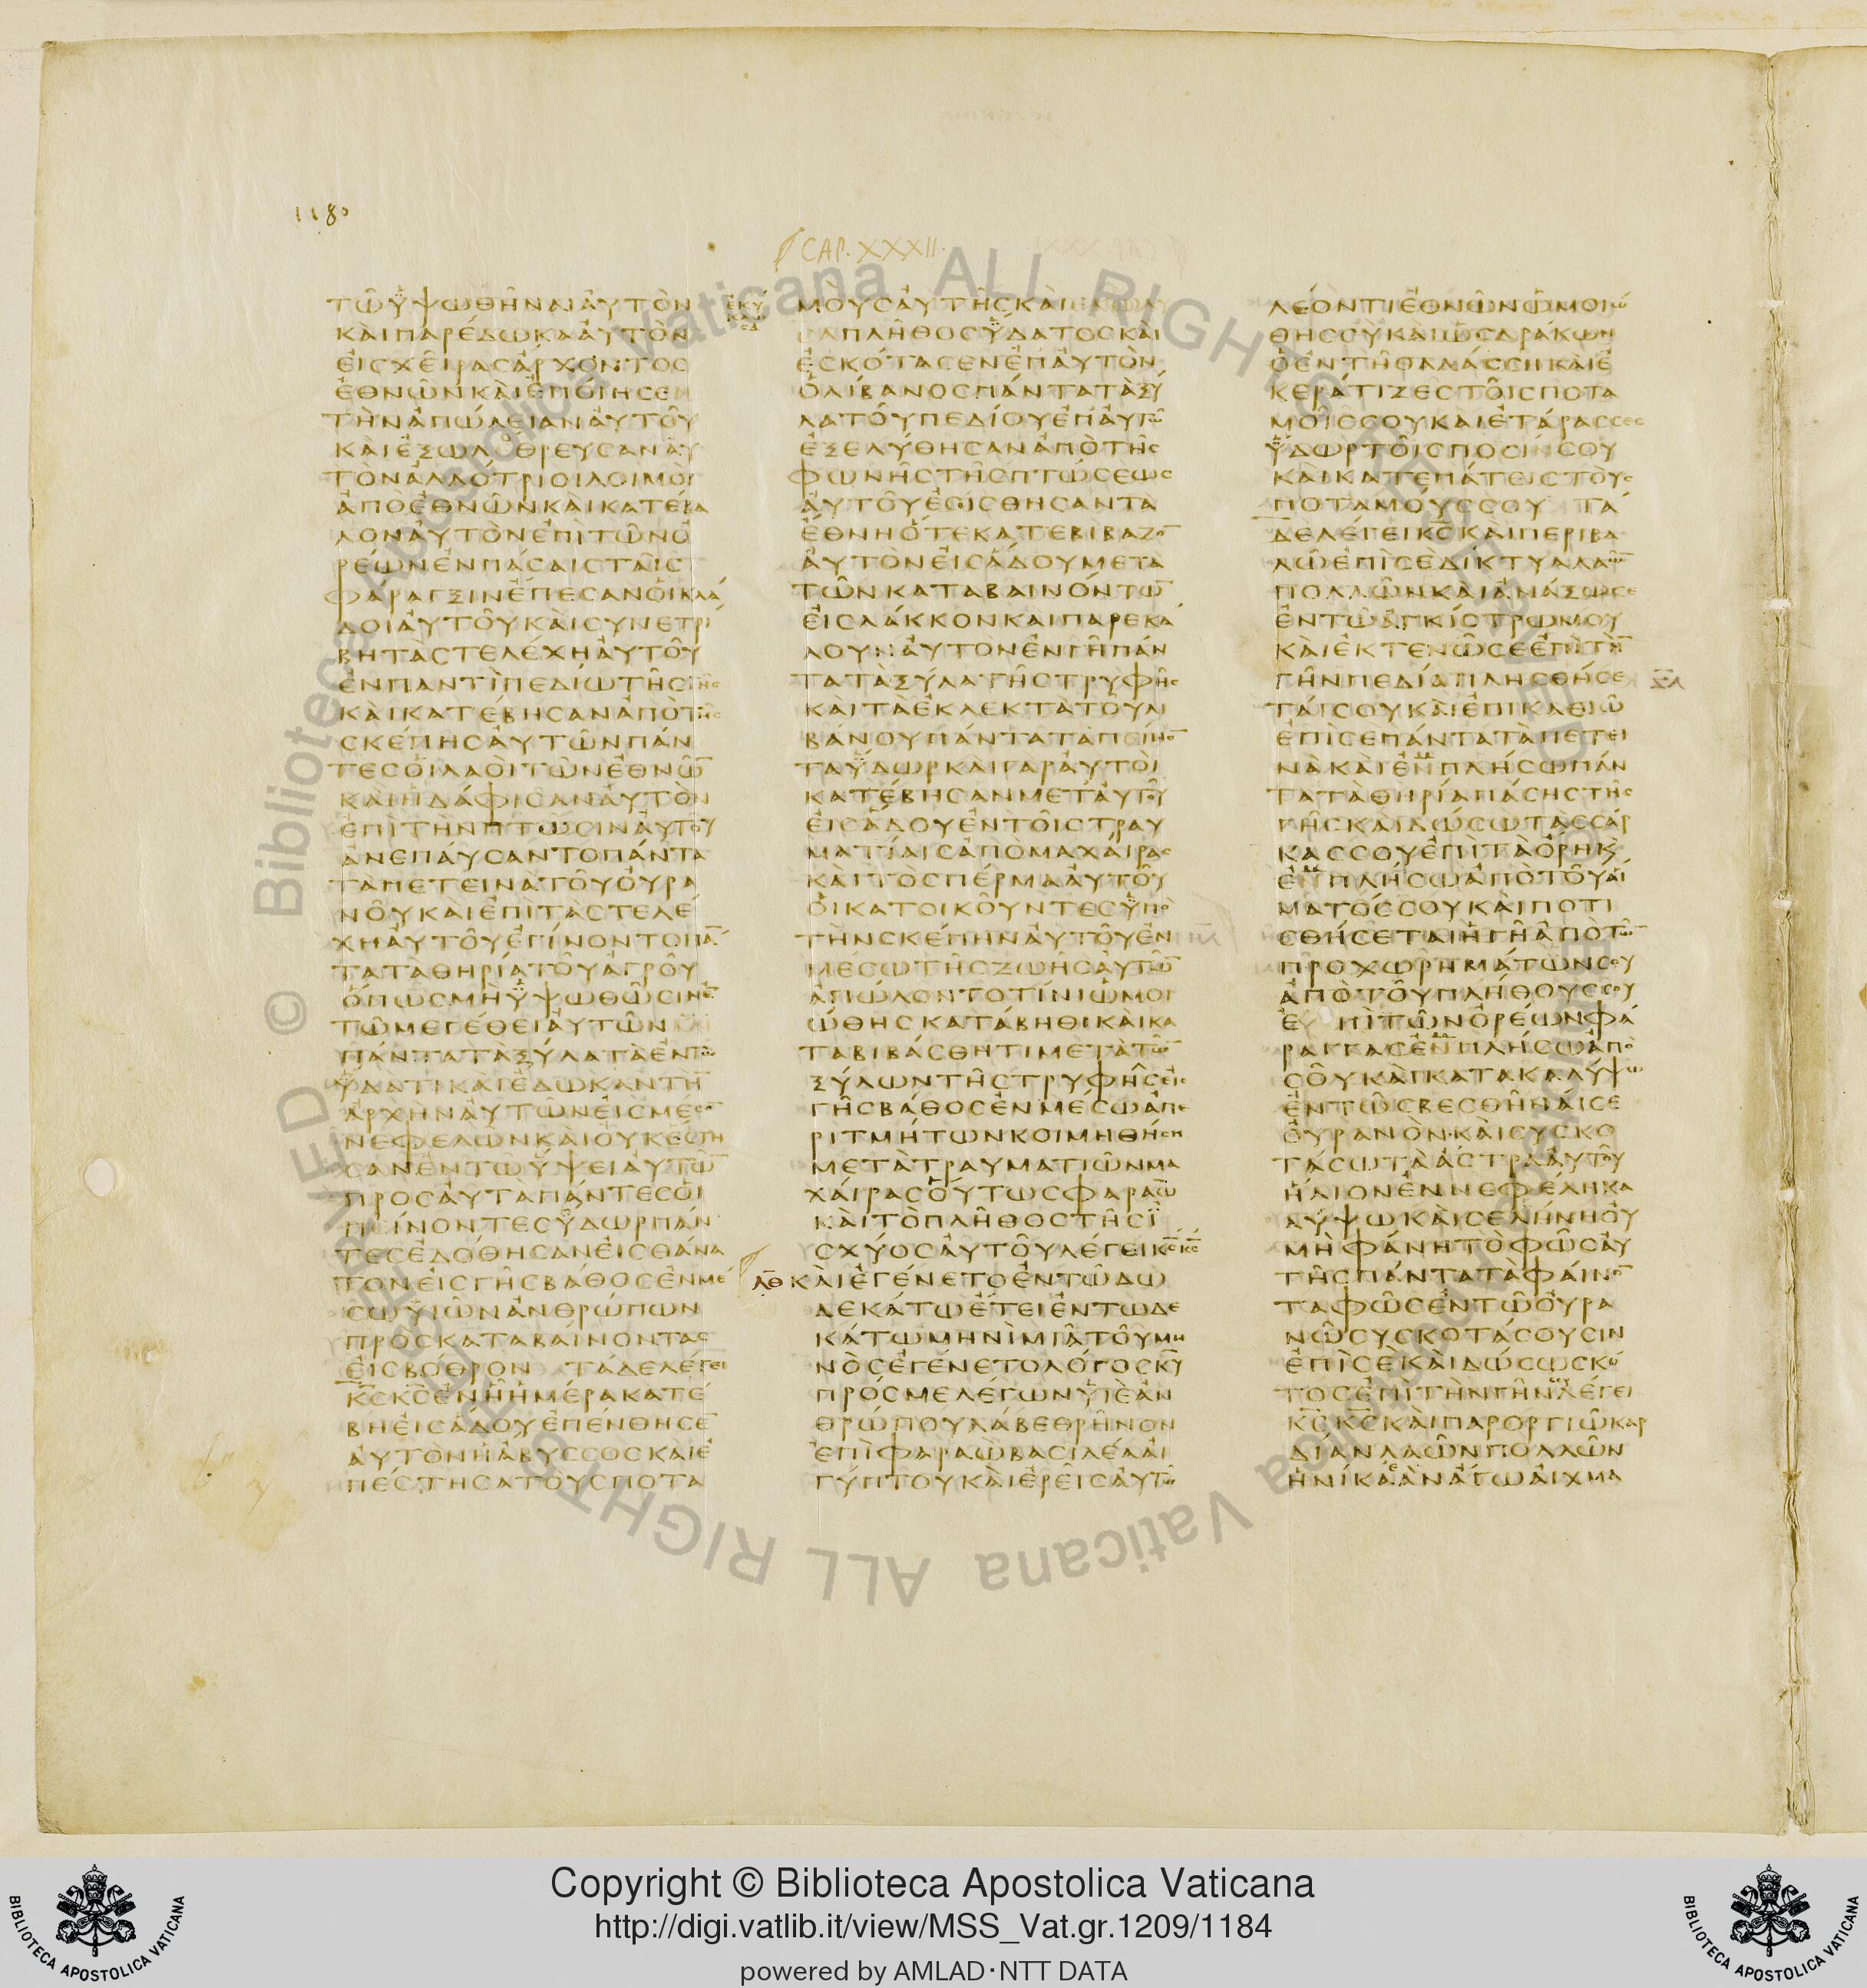 1180
CAP. XXXII.
ΤΩΥΨΩΘΗΝΑΙΑΥΤΟΝ
ΚΑΙΠΑΡΕΔΩΚΑΑΥΤΟΝ
ΕΙΣΧΕΙΡΑΣΑΡΧΟΝΤΟΣ
ΕΘΝΩΝΚΑΙΕΠΟΙΗΣΕΝ
ΤΗΝΑΠΩΛΕΙΑΝΑΥΤΟΥ
ΚΑΙΕΞΩΛΕΘΡΕΥΣΑΝΑΥ
ΤΟΝΑΛΛΟΤΡΙΟΙΛΟΙΜΟΙ
ΑΠΟΕΘΝΩΝΚΑΙΚΑΤΕΒΑ
ΛΟΝΑΥΤΟΝΕΠΙΤΩΝΟ
ΡΕΩΝΕΝΠΑΣΑΙΣΤΑΙΣ
ΦΑΡΑΓΞΙΝΕΠΕΣΑΝΟΙΚΛΑ
ΔΟΙΑΥΤΟΥΚΑΙΣΥΝΕΤΡΙ
ΒΗΤΑΣΤΕΛΕΧΗΑΥΤΟΥ
ΕΝΠΑΝΤΙΠΕΔΙΩΤΗΣΓΗΣ
ΚΑΙΚΑΤΕΒΗΣΑΝΑΠΟΤΗΣ
ΣΚΕΠΗΣΑΥΤΩΝΠΑΝ
ΤΕΣΟΙΛΑΟΙΤΩΝΕΘΝΩ̅
ΚΑΙΗΔΑΦΙΣΑΝΑΥΤΟΝ
ΕΠΙΤΗΝΠΤΩΣΙΝΑΥΤΟΥ
ΑΝΕΠΑΥΣΑΝΤΟΠΑΝΤΑ
ΤΑΠΕΤΕΙΝΑΤΟΥΟΥΡΑ
ΝΟΥΚΑΙΕΠΙΤΑΣΤΕΛΕ
ΧΗΑΥΤΟΥΕΓΙΝΟΝΤΟΠΑ̅
ΤΑΤΑΘΗΡΙΑΤΟΥΑΓΡΟΥ
ΟΠΩΣΜΗΥΨΩΘΩΣΙΝΕ̅
ΤΩΜΕΓΕΘΕΙΑΥΤΩΝ
ΠΑΝΤΑΤΑΞΥΛΑΤΑΕΝΤΩ
ΥΔΑΤΙΚΑΙΕΔΩΚΑΝΤΗ̅
ΑΡΧΗΝΑΥΤΩΝΕΙΣΜΕΣΟ̅
ΝΕΦΕΛΩΝΚΑΙΟΥΚΕΣΤΗ
ΣΑΝΕΝΤΩΥΨΕΙΑΥΤΩ̅
ΠΡΟΣΑΥΤΑΠΑΝΤΕΣΟΙ
ΠΕΙΝΟΝΤΕΣΥΔΩΡΠΑΝ
ΤΕΣΕΔΟΘΗΣΑΝΕΙΣΘΑΝΑ
ΤΟΝΕΙΣΓΗΣΒΑΘΟΣΕΝΜΕ
ΣΩΥΙΩΝΑΝΘΡΩΠΩΝ
ΠΡΟΣΚΑΤΑΒΑΙΝΟΝΤΑΣ
ΕΙΣΒΟΘΡΟΝ ΤΑΔΕΛΕΓΕΙ
Κ̅Σ̅Κ̅Σ̅ΕΝΗΗΜΕΡΑΚΑΤΕ
ΒΗΕΙΣΑΔΟΥΕΠΕΝΘΗΣΕ̅
ΑΥΤΟΝΗΑΒΥΣΣΟΣΚΑΙΕ
ΠΕΣΤΗΣΑΤΟΥΣΠΟΤΑ
ΜΟΥΣΑΥΤΗΣΚΑΙΕΚΩΛΥ
ΣΑΠΛΗΘΟΣΥΔΑΤΟΣΚΑΙ
ΕΣΚΟΤΑΣΕΝΕΠΑΥΤΟΝ
ΟΛΙΒΑΝΟΣΠΑΝΤΑΤΑΞΥ
ΛΑΤΟΥΠΕΔΙΟΥΕΠΑΥΤΩ
ΕΞΕΛΥΘΗΣΑΝΑΠΟΤΗΣ
ΦΩΝΗΣΤΗΣΠΤΩΣΕΩΣ
ΑΥΤΟΥΕΣΙΣΘΗΣΑΝΤΑ
ΕΘΝΗΟΤΕΚΑΤΕΒΙΒΑΖΟ̅
ΑΥΤΟΝΕΙΣΑΔΟΥΜΕΤΑ
ΤΩΝΚΑΤΑΒΑΙΝΟΝΤΩ̅
ΕΙΣΛΑΚΚΟΝΚΑΙΠΑΡΕΚΑ
ΛΟΥΝΑΥΤΟΝΕΝΓΗΠΑΝ
ΤΑΤΑΞΥΛΑΤΗΣΤΡΥΦΗΣ
ΚΑΙΤΑΕΚΛΕΚΤΑΤΟΥΛΙ
ΒΑΝΟΥΠΑΝΤΑΤΑΠΕΙΝΟ̅
ΤΑΥΔΩΡΚΑΙΓΑΡΑΥΤΟΙ
ΚΑΤΕΒΗΣΑΝΜΕΤΑΥΤΟΥ
ΕΙΣΑΔΟΥΕΝΤΟΙΣΤΡΑΥ
ΜΑΤΙΑΙΣΑΠΟΜΑΧΑΙΡΑΣ
ΚΑΙΤΟΣΠΕΡΜΑΑΥΤΟΥ
ΟΙΚΑΤΟΙΚΟΥΝΤΕΣΥΠΟ
ΤΗΝΣΚΕΠΗΝΑΥΤΟΥΕΝ
ΜΕΣΩΤΗΣΖΩΗΣΑΥΤΩ̅
ΑΠΩΛΟΝΤΟΤΙΝΙΩΜΟΙ
ΩΘΗΣΚΑΤΑΒΗΘΙΚΑΙΚΑ
ΤΑΒΙΒΑΣΘΗΤΙΜΕΤΑΤΩ̅
ΞΥΛΩΝΤΗΣΤΡΥΦΗΣΕΙΣ
ΓΗΣΒΑΘΟΣΕΝΜΕΣΩΑΠΕ
ΡΙΤΜΗΤΩΝΚΟΙΜΗΘΗΣΗ
ΜΕΤΑΤΡΑΥΜΑΤΙΩΝΜΑ
ΧΑΙΡΑΣΟΥΤΩΣΦΑΡΑΩ
ΚΑΙΤΟΠΛΗΘΟΣΤΗΣΙ
ΣΧΥΟΣΑΥΤΟΥΛΕΓΕΙΚ̅Σ̅Κ̅Σ̅
Λ̅Θ̅ ΚΑΙΕΓΕΝΕΤΟΕΝΤΩΔΩ
ΔΕΚΑΤΩΕΤΕΙΕΝΤΩΔΕ
ΚΑΤΩΜΗΝΙΜΙΑΤΟΥΜΗ
ΝΟΣΕΓΕΝΕΤΟΛΟΓΟΣΚ̅Υ̅
ΠΡΟΣΜΕΛΕΓΩΝΥΙΕΑΝ
ΘΡΩΠΟΥΛΑΒΕΘΡΗΝΟΝ
ΕΠΙΦΑΡΑΩΒΑΣΙΛΕΑΑΙ
ΓΥΠΤΟΥΚΑΙΕΡΕΙΣΑΥΤΩ
ΛΕΟΝΤΙΕΘΝΩΝΩΜΟΙΩ
ΘΗΣΣΥΚΑΙΩΣΔΡΑΚΩΝ
ΟΕΝΤΗΘΑΛΑΣΣΗΚΑΙΕ
ΚΕΡΑΤΙΖΕΣΤΟΙΣΠΟΤΑ
ΜΟΙΣΣΟΥΚΑΙΕΤΑΡΑΣΣΕΣ
ΥΔΩΡΤΟΙΣΠΟΣΙΝΣΟΥ
ΚΑΙΚΑΤΕΠΑΤΕΙΣΤΟΥΣ
ΠΟΤΑΜΟΥΣΣΟΥ ΤΑ
ΔΕΛΕΓΕΙΚ̅Σ̅ΚΑΙΠΕΡΙΒΑ
ΛΩΕΠΙΣΕΔΙΚΤΥΑΛΑΩ̅
ΠΟΛΛΩΝΚΑΙΑΝΑΞΩΣΕ
ΕΝΤΩΑΓΚΙΣΤΡΩΜΟΥ
ΚΑΙΕΚΤΕΝΩΣΕΕΠΙΤΗ̅
ΓΗΝΠΕΔΙΑΠΛΗΣΘΗΣΕ
ΤΑΙΣΟΥΚΑΙΕΠΙΚΑΘΙΩ
ΕΠΙΣΕΠΑΝΤΑΤΑΠΕΤΕΙ
ΝΑΚΑΙΕΜΠΛΗΣΩΠΑΝ
ΤΑΤΑΘΗΡΙΑΠΑΣΗΣΤΗΣ
ΓΗΣΚΑΙΔΩΣΩΤΑΣΣΑΡ
ΚΑΣΣΟΥΕΠΙΤΑΟΡΗΚ
ΕΜΠΛΗΣΩΑΠΟΤΟΥΑΙ
ΜΑΤΟΣΣΟΥΚΑΙΠΟΤΙ
ΣΘΗΣΕΤΑΙΗΓΗΑΠΟΤΩ̅
ΠΡΟΧΩΡΗΜΑΤΩΝΣΟΥ
ΑΠΟΤΟΥΠΛΗΘΟΥΣΣΟΥ
ΕΠΙΤΩΝΟΡΕΩΝΦΑ
ΡΑΓΓΑΣΕΜΠΛΗΣΩΑΠΟ
ΣΟΥΚΑΙΚΑΤΑΚΑΛΥΨΩ
ΕΝΤΩΣΒΕΣΘΗΝΑΙΣΕ
ΟΥΡΑΝΟΝΚΑΙΣΥΣΚΟ
ΤΑΣΩΤΑΑΣΤΡΑΑΥΤΟΥ
ΗΛΙΟΝΕΝΝΕΦΕΛΗΚΑ
ΛΥΨΩΚΑΙΣΕΛΗΝΗΟΥ
ΜΗΦΑΝΗΤΟΦΩΣΑΥ
ΤΗΣΠΑΝΤΑΤΑΦΑΙΝΟ̅
ΤΑΦΩΣΕΝΤΩΟΥΡΑ
ΝΩΣΥΣΚΟΤΑΣΟΥΣΙΝ
ΕΠΙΣΕΚΑΙΔΩΣΩΣΚΟ
ΤΟΣΕΠΙΤΗΝΓΗΝΛΕΓΕΙ
Κ̅Σ̅Κ̅Σ̅ΚΑΙΠΑΡΟΡΓΙΩΚΑΡ
ΔΙΑΝΛΑΩΝΠΟΛΛΩΝ
ΗΝΙΚΑΑΝΑΓΩΑΙΧΜΑ
Copyright © Biblioteca Apostolica Vaticana
http://digi.vatlib.it/view/MSS_Vat.gr.1209/1184
powered by AMLAD·NTT DATA